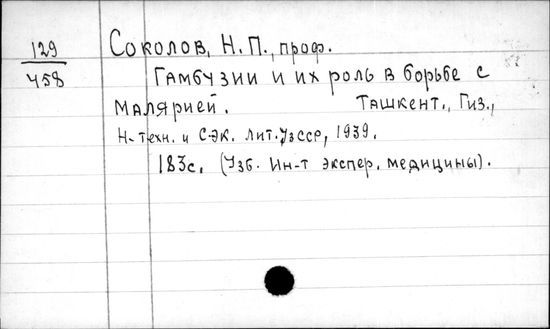 129
458
Соколов, Н. П., проф.
Гамбузии и их роль в борьбе с
малярией. Ташкент., Гиз.,
Н-техн. и С-эк. лит. УзССР, 1939.
183с. (Узб. Ин-т экспер. медицины).